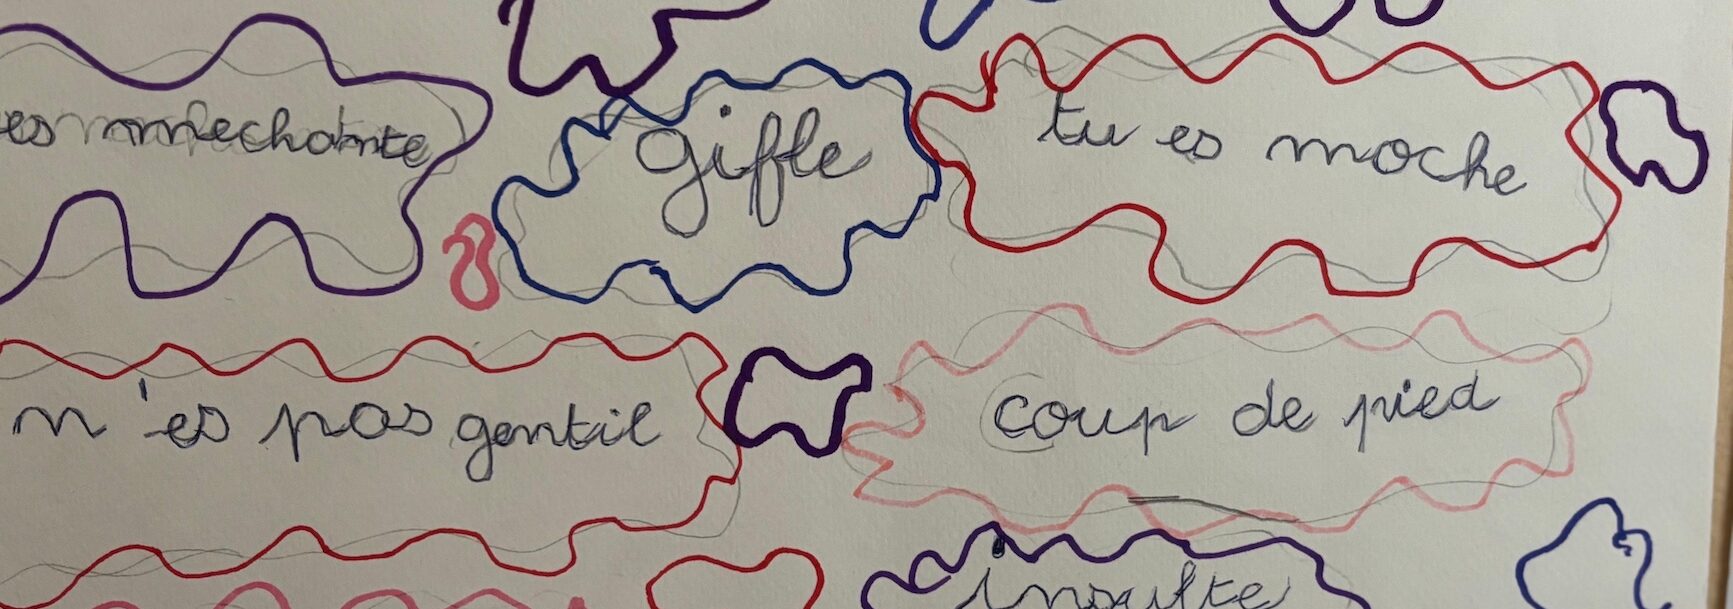 es méchante
gifle
tu es moche
n'es pas gentil
coup de pied
insulte